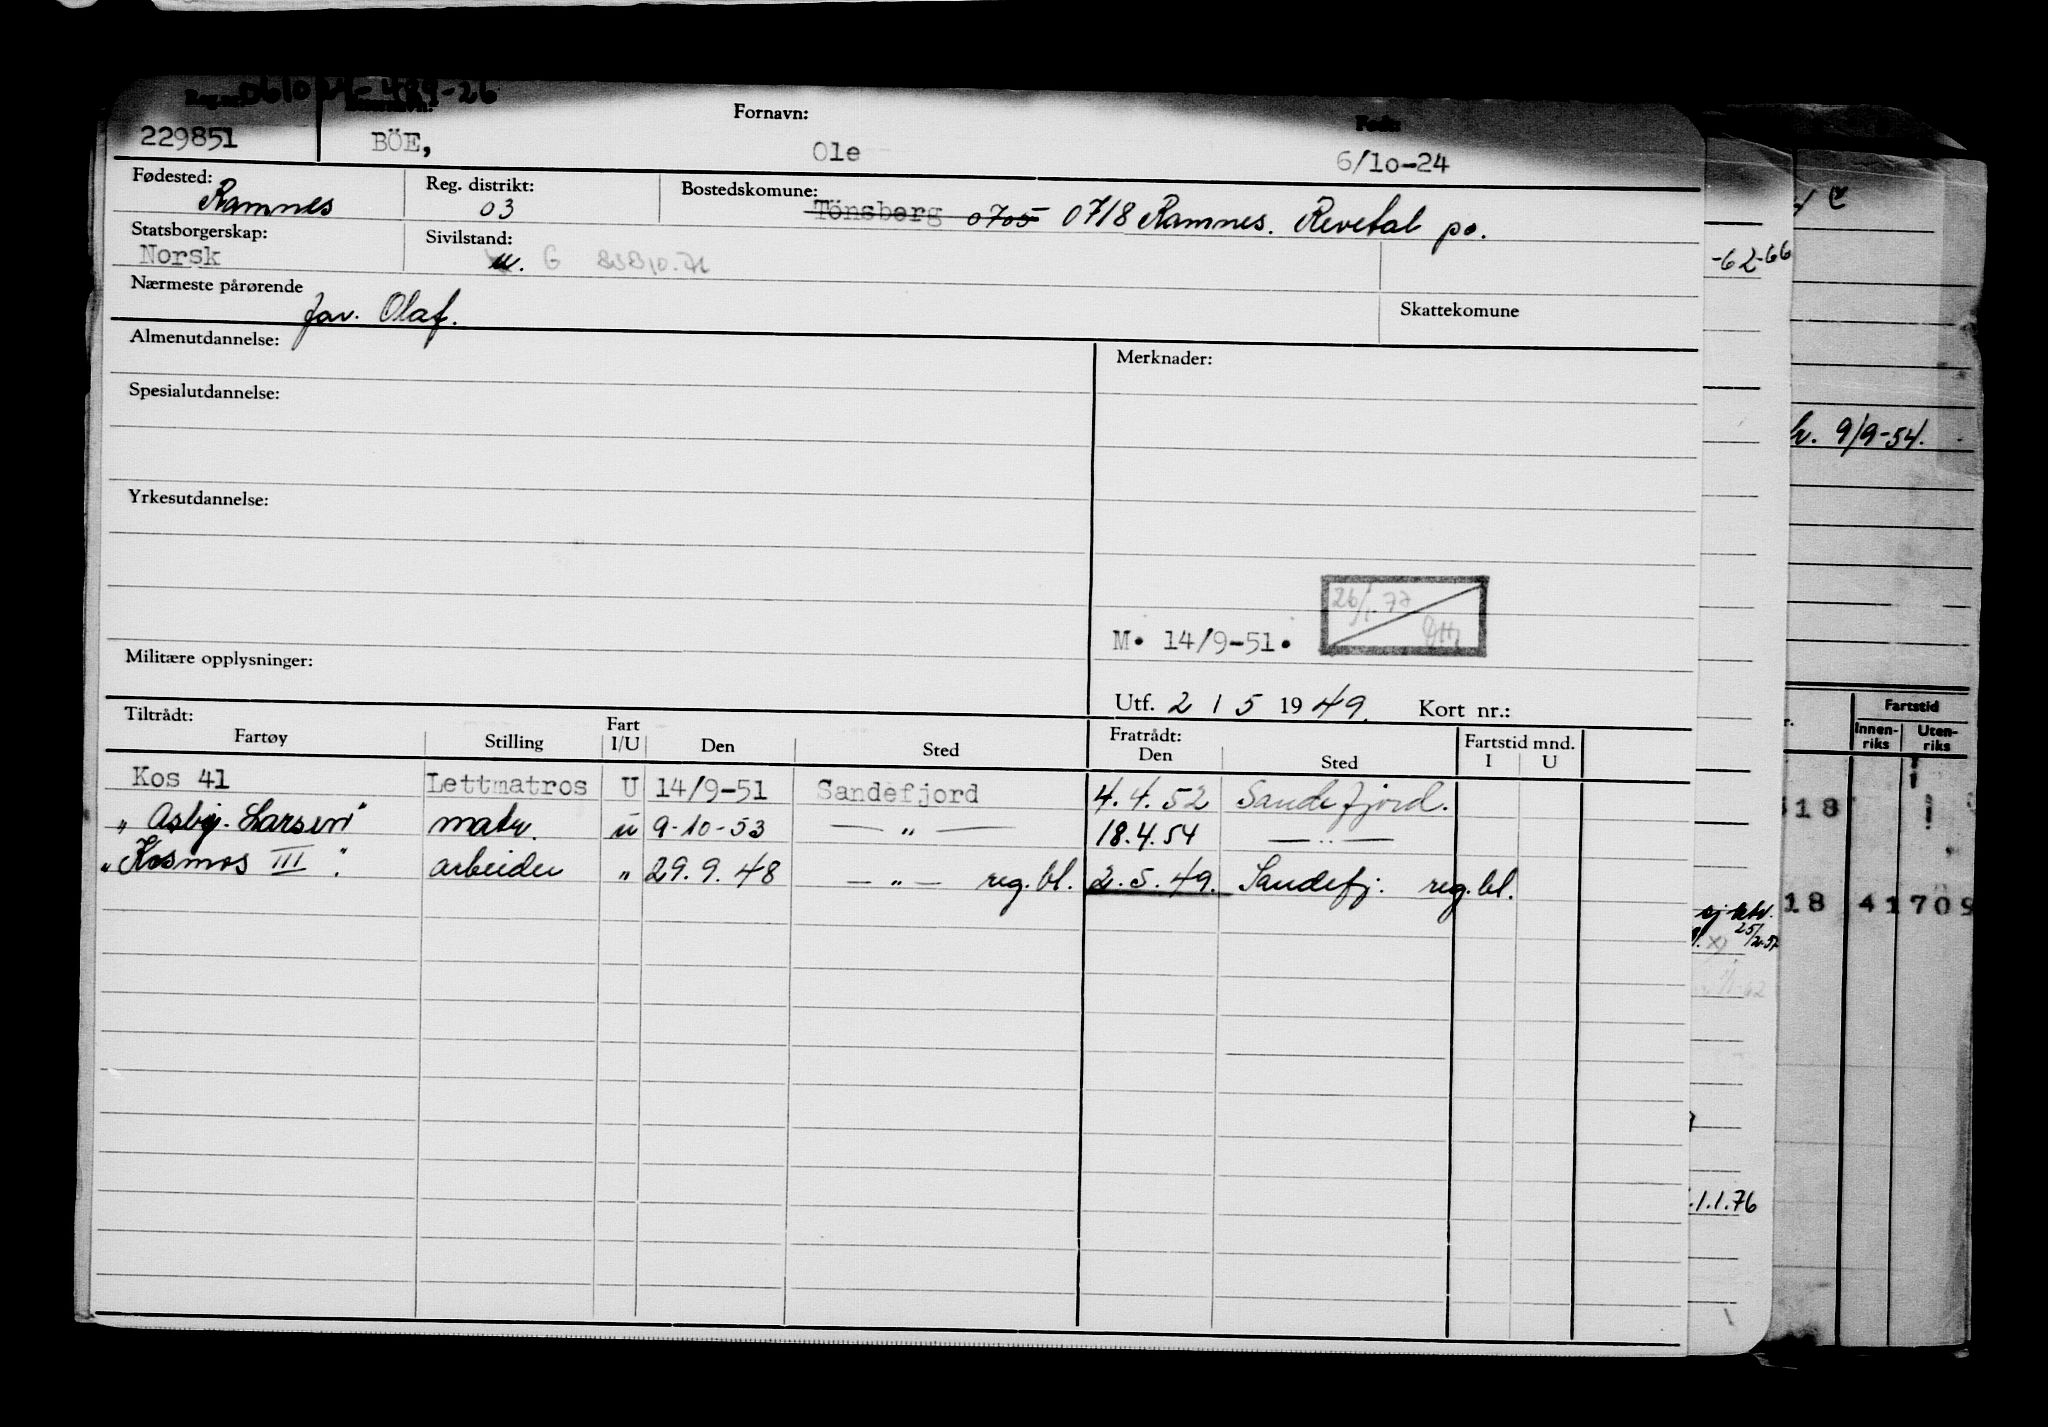 061024-489-26
Fornavn: Født:
229851 BÖE, Ole 6/10-24
Fødested: Reg. distrikt: Bostedskomune:
Ramnes 03 Tönsberg 0705 0718 Ramnes. Revetal po.
Statsborgerskap: Sivilstand:
Norsk G
Nærmeste pårørende
far. Olaf. Skattekomune
Almenutdannelse: Merknader:
Spesialutdannelse:
Yrkesutdannelse:
26/1.77
M. 14/9-51.
Militære opplysninger:
Utf. 2 / 5 1949. Kort nr.:
Tiltrådt: Fart Fratrådt: Fartstid mnd.
Fartøy Stilling I/U Den Sted Den Sted I U
Kos 41 Lettmatros U 14/9-51 Sandefjord 4.4.52 Sandefjord.
"Asbj. Larsen" matr. u 9-10-53 — " — 18.4.54 — " —
"Kosmos III" arbeider " 29.9.48 — " — reg.bl. 2.5.49. Sandefj. reg.bl.
-62-66
9/9-54.
Fartstid
Innen-riks Uten-riks
18
18 41 709
25/2-57
1.1.76